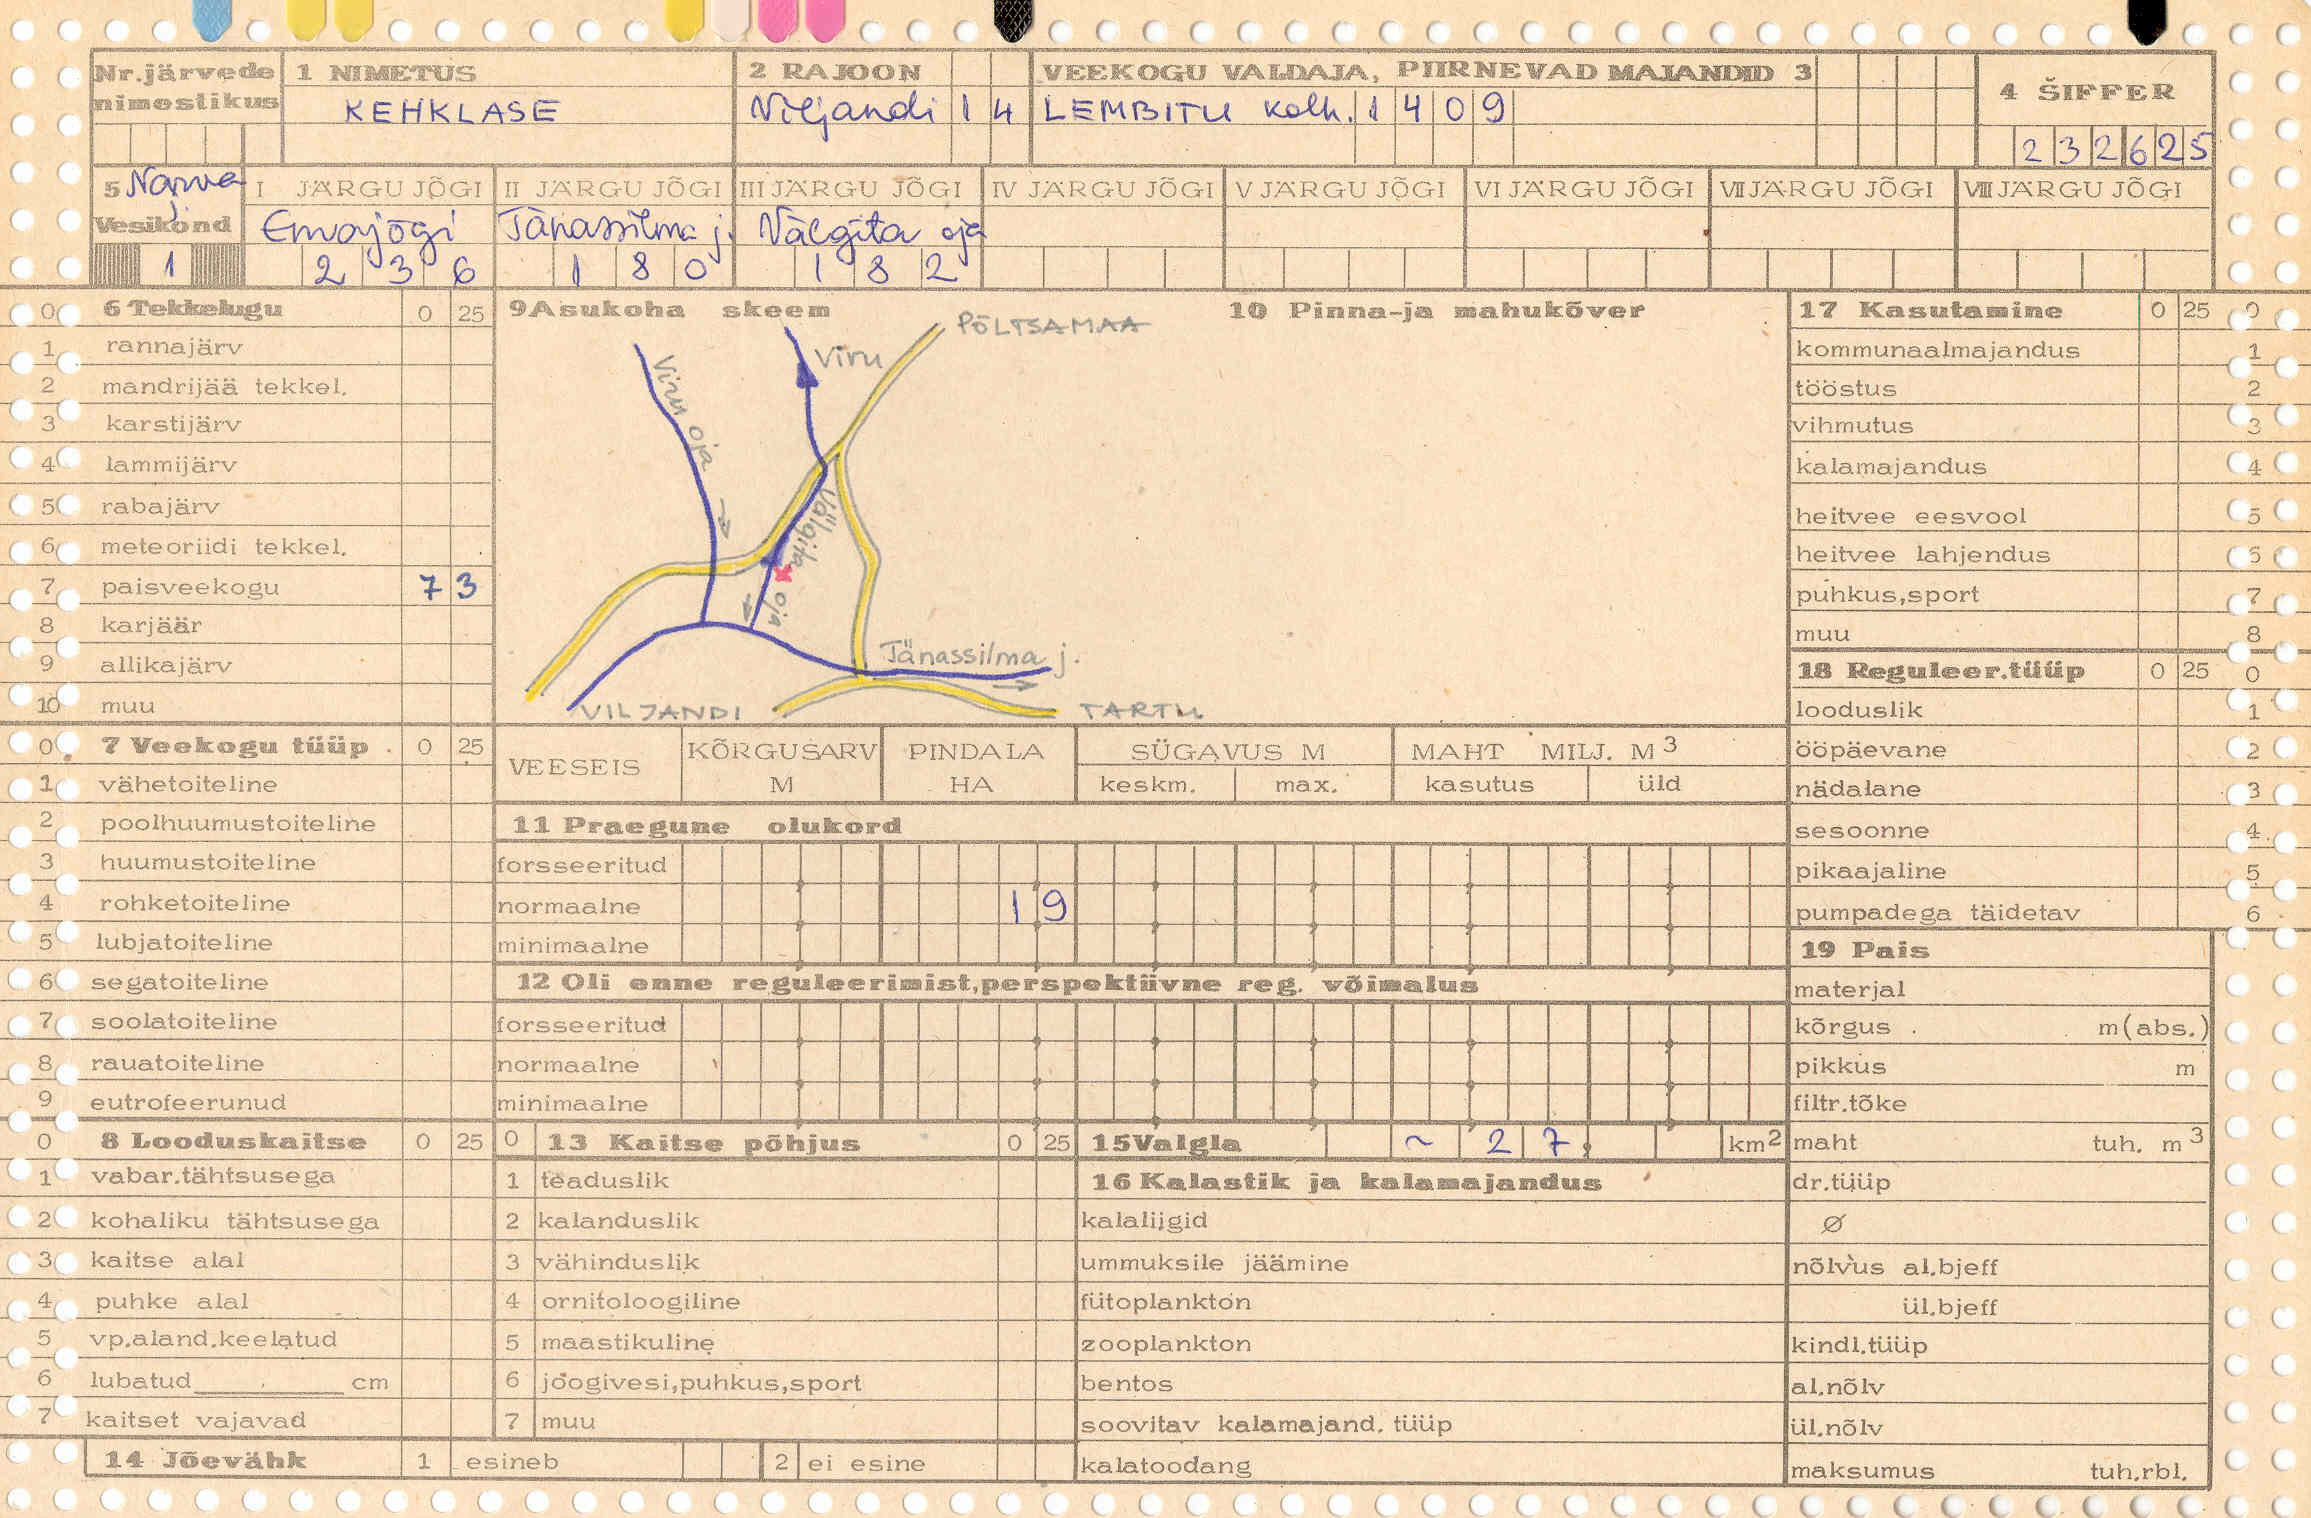 Nr.järvede nimestikus
1 NIMETUS
KEHKLASE
2 RAJOON
Viljandi 1 4
VEEKOGU VALDAJA, PIIRNEVAD MAJANDID 3
LEMBITU kolh. 1 4 0 9
4 ŠIFFER
2 3 2 6 2 5
5 Narva j.
Vesikond
1
I JÄRGU JÕGI
Emajõgi
2 3 6
II JÄRGU JÕGI
Tänassilma j.
1 8 0
III JÄRGU JÕGI
Välgita oja
1 8 2
IV JÄRGU JÕGI
V JÄRGU JÕGI
VI JÄRGU JÕGI
VII JÄRGU JÕGI
VIII JÄRGU JÕGI
0 6 Tekkelugu 0 25
1 rannajärv
2 mandrijää tekkel.
3 karstijärv
4 lammijärv
5 rabajärv
6 meteoriidi tekkel.
7 paisveekogu 7 3
8 karjäär
9 allikajärv
10 muu
9 Asukoha skeem
10 Pinna-ja mahukõver
PÕLTSAMAA
Viru
Viru oja
Välgita oja
Tänassilma j.
VILJANDI
TARTU
17 Kasutamine 0 25 0
kommunaalmajandus 1
tööstus 2
vihmutus 3
kalamajandus 4
heitvee eesvool 5
heitvee lahjendus 6
puhkus,sport 7
muu 8
18 Reguleer.tüüp 0 25 0
looduslik 1
ööpäevane 2
nädalane 3
sesoonne 4
pikaajaline 5
pumpadega täidetav 6
0 7 Veekogu tüüp 0 25
1 vähetoiteline
2 poolhuumustoiteline
3 huumustoiteline
4 rohketoiteline
5 lubjatoiteline
6 segatoiteline
7 soolatoiteline
8 rauatoiteline
9 eutrofeerunud
VEESEIS
KÕRGUSARV M
PINDALA HA
SÜGAVUS M
keskm. max.
MAHT MILJ. M3
kasutus üld
11 Praegune olukord
forsseeritud
normaalne 1 9
minimaalne
12 Oli enne reguleerimist,perspektiivne reg. võimalus
forsseeritud
normaalne
minimaalne
19 Pais
materjal
kõrgus m(abs.)
pikkus m
filtr.tõke
maht tuh. m3
dr.tüüp
Ø
nõlvus al.bjeff
ül.bjeff
kindl.tüüp
al.nõlv
ül.nõlv
maksumus tuh.rbl.
0 8 Looduskaitse 0 25
1 vabar.tähtsusega
2 kohaliku tähtsusega
3 kaitse alal
4 puhke alal
5 vp.aland.keelatud
6 lubatud cm
7 kaitset vajavad
0 13 Kaitse põhjus 0 25
1 teaduslik
2 kalanduslik
3 vähinduslik
4 ornitoloogiline
5 maastikuline
6 joogivesi,puhkus,sport
7 muu
15 Valgla ~ 2 7, km2
16 Kalastik ja kalamajandus
kalaliigid
ummuksile jäämine
fütoplankton
zooplankton
bentos
soovitav kalamajand. tüüp
kalatoodang
14 Jõevähk 1 esineb 2 ei esine